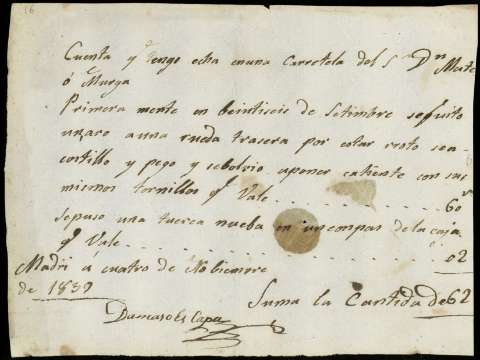 16
Cuenta y tengo echa en una Carretela del Sr Dn Mate
o Murga
Primera mente en beintiseis de Setimbre se quito
un aro a una rueda trasera por estar roto sea
cortillo y pego y se bolvio a poner caliente con sus
mismos tornillos q.e Vale . . . . . . . . . . . . 60 r
se puso una tuerca nueba en un compas de la caja
q.e Vale . . . . . . . . . . . . . . . . . . . . 02
Madri a cuatro de Nobiembre
de 1839
Suma la Cantida de 62
Damaso Es Capa